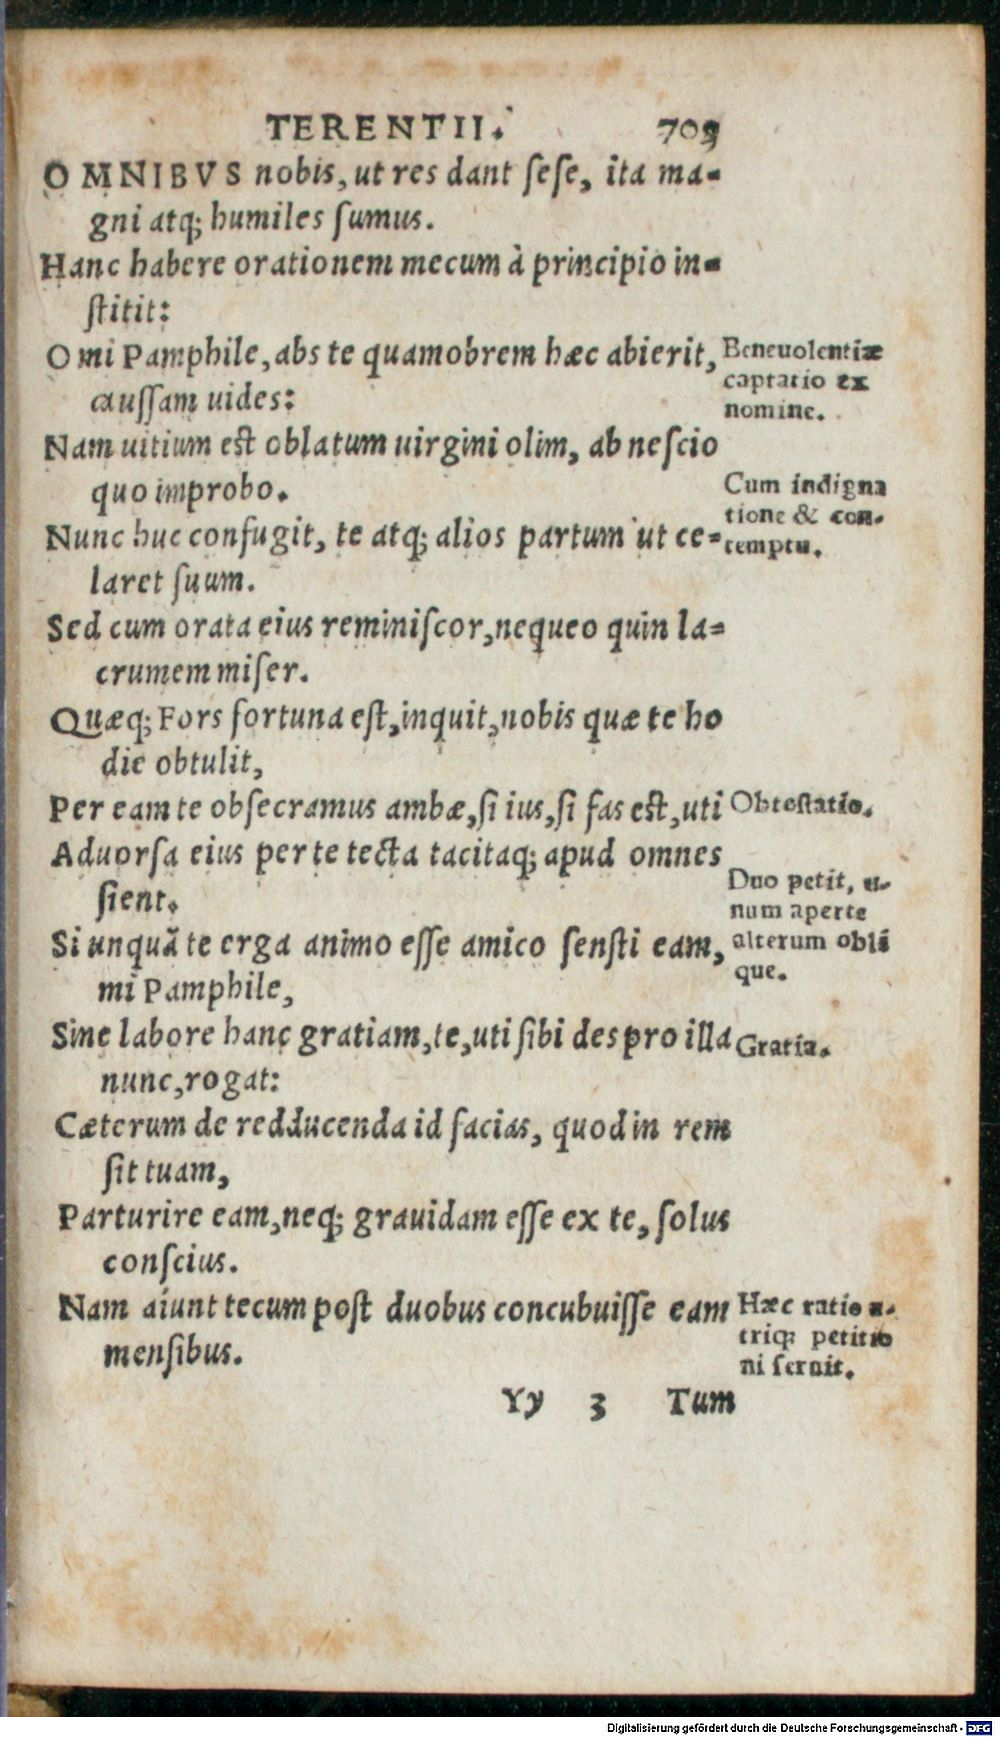 TERENTII. 709
OMNIBVS nobis, ut res dant sese, ita ma-
gni atq; humiles sumus.
Hanc habere orationem mecum à principio in-
stitit:
O mi Pamphile, abs te quamobrem hæc abierit,
caussam uides:
Benevolentiæ
captatio ex
nomine.
Nam uitium est oblatum uirgini olim, ab nescio
quo improbo.
Nunc huc confugit, te atq; alios partum ut ce-
laret suum.
Cum indigna
tione & con-
temptu.
Sed cum orata eius reminiscor, nequeo quin la-
crumem miser.
Quæq; Fors fortuna est, inquit, nobis quæ te ho
die obtulit,
Per eam te obsecramus ambæ, si ius, si fas est, uti
Obtestatio.
Aduorsa eius per te tecta tacitaq; apud omnes
sient.
Si unquã te erga animo esse amico sensti eam,
mi Pamphile,
Duo petit, u-
num aperte
alterum obli
que.
Sine labore hanc gratiam, te, uti sibi des pro illa
nunc, rogat:
Gratia.
Cæterum de redducenda id facias, quod in rem
sit tuam,
Parturire eam, neq; grauidam esse ex te, solus
conscius.
Nam aiunt tecum post duobus concubuisse eam
mensibus.
Hæc ratio u-
triq; petitio
ni seruit.
Yy 3 Tum
Digitalisierung gefördert durch die Deutsche Forschungsgemeinschaft - DFG